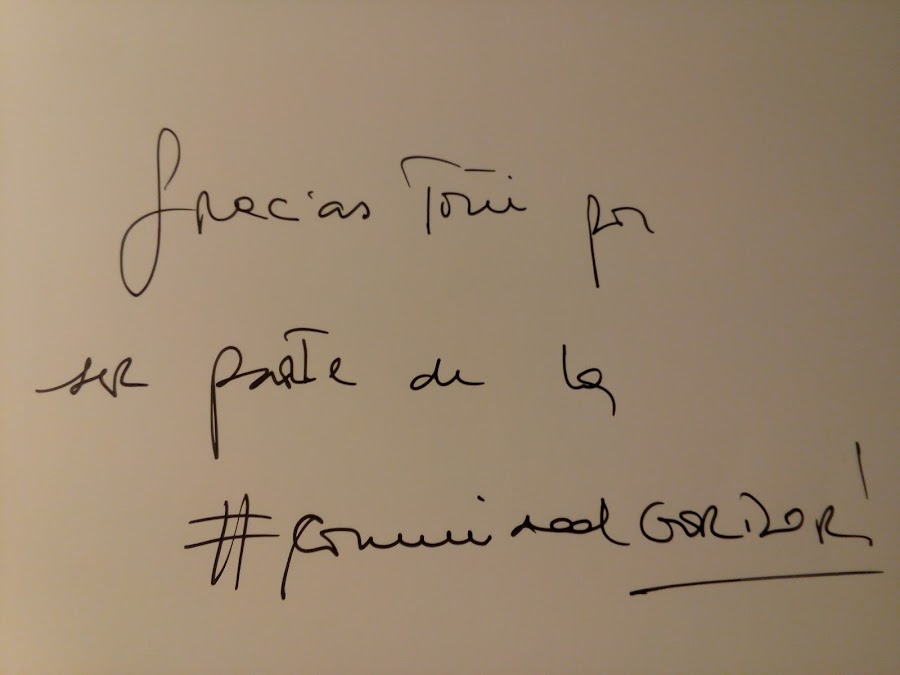 Gracias Toñi por
ser parte de la
#comunidad GORIZOR!